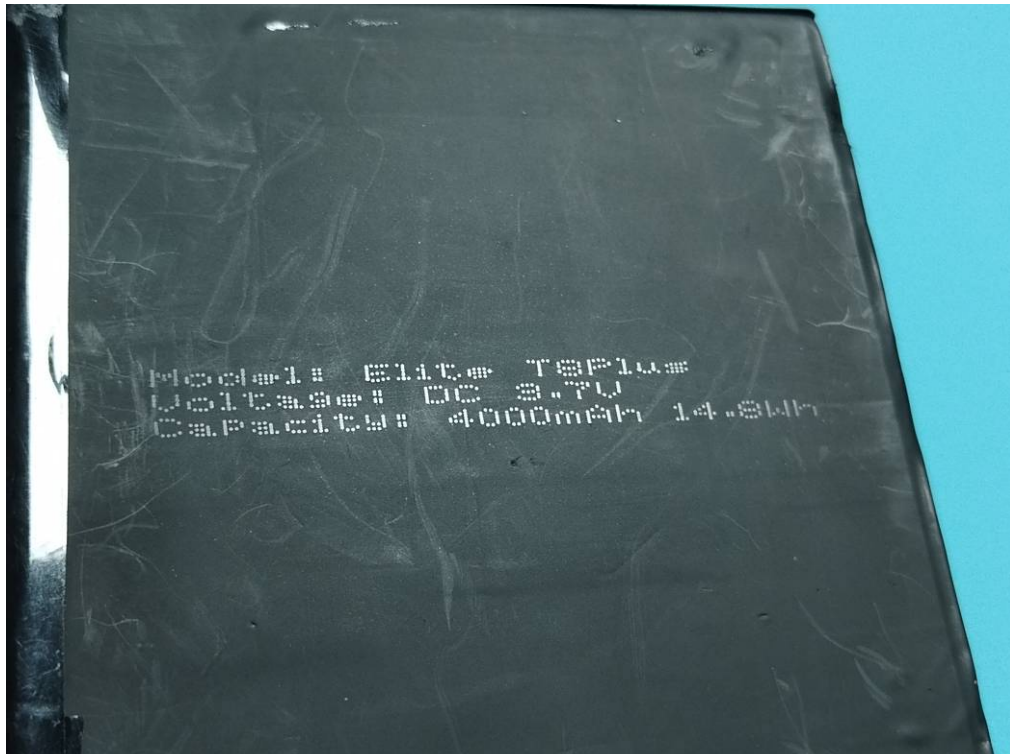 Model: Elite T8Plus
Voltage: DC 3.7V
Capacity: 4000mAh 14.8Wh